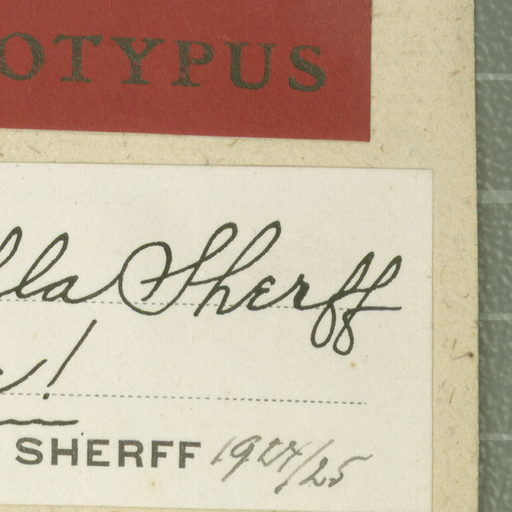 OTYPUS
lla Sherff
!
SHERFF 1924/25